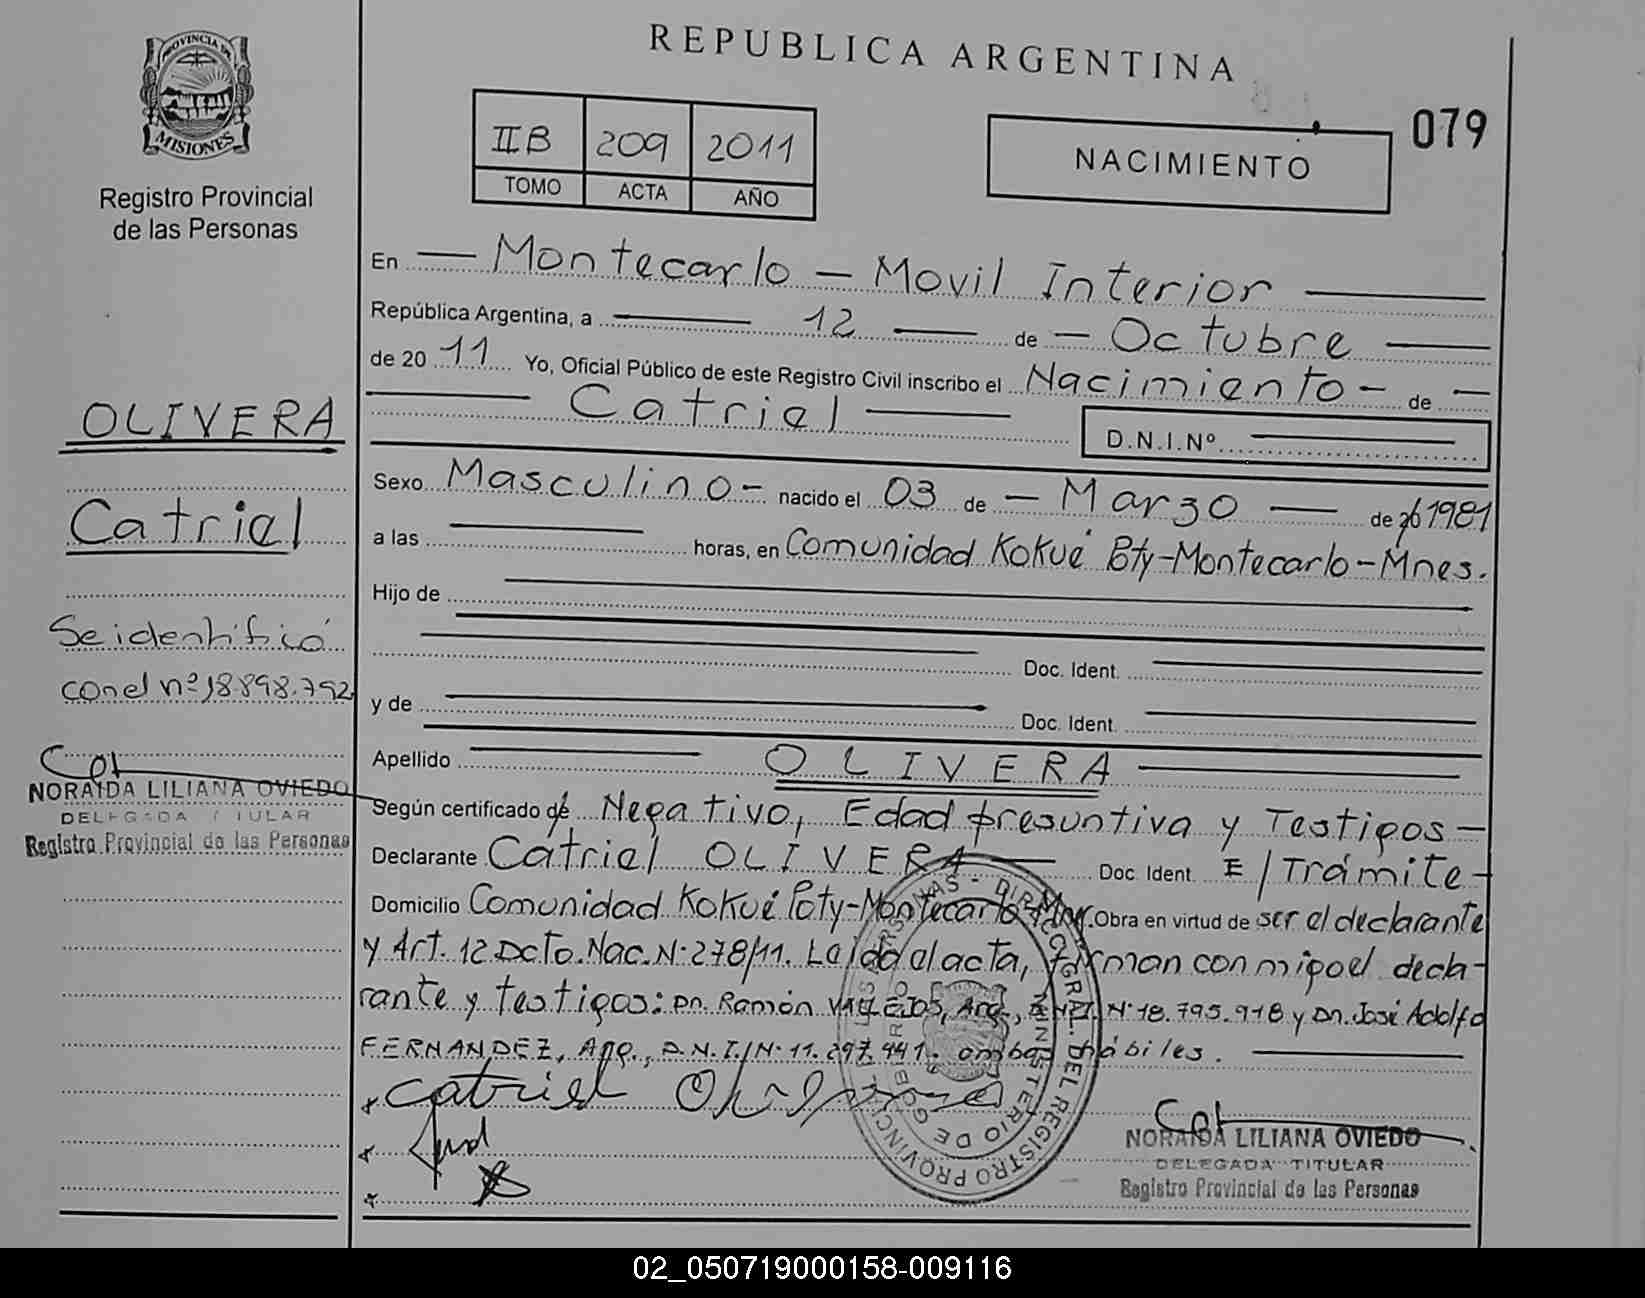 REPUBLICA ARGENTINA
PROVINCIA DE MISIONES
Registro Provincial
de las Personas
IIB 209 2011
TOMO ACTA AÑO
NACIMIENTO
079
En Montecarlo - Movil Interior
República Argentina, a 12 de Octubre
de 2011 Yo, Oficial Público de este Registro Civil inscribo el Nacimiento - de
Catriel
D.N.I.Nº
Sexo Masculino - nacido el 03 de Marzo de 20 1981
a las horas, en Comunidad Kokué Poty - Montecarlo - Mnes.
Hijo de
Doc. Ident.
y de
Doc. Ident.
Apellido OLIVERA
Según certificado de Negativo, Edad presuntiva y Testigos -
Declarante Catriel OLIVERA Doc. Ident. E/Trámite -
Domicilio Comunidad Kokué Poty - Montecarlo - Mnes. Obra en virtud de ser el declarante
y Art. 12 Dcto. Nac. Nº 278/11. Leída el acta, firman conmigo el decla-
rante y testigos: Dn. Ramón VALLEJOS, Arg., D.N.I. Nº 18.795.918 y Dn. José Adolfo
FERNANDEZ, Arg., D.N.I. Nº 11.297.441. ambos hábiles.
Catriel Olivera
NORAIDA LILIANA OVIEDO
DELEGADA TITULAR
Registro Provincial de las Personas
OLIVERA
Catriel
Se identificó
con el nº 18.898.792
NORAIDA LILIANA OVIEDO
DELEGADA TITULAR
Registro Provincial de las Personas
DIR. GRAL. DEL REGISTRO PROVINCIAL DE LAS PERSONAS
MINISTERIO DE GOBIERNO
02_050719000158-009116